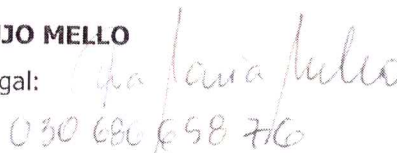 JO MELLO
gal: Maria Mello
030 686 658 76